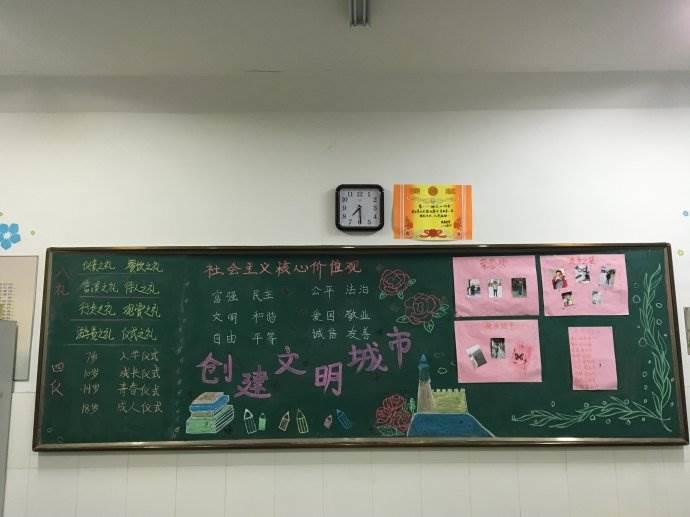 八礼
仪表之礼 餐饮之礼
言谈之礼 待人之礼
行走之礼 观赏之礼
游览之礼 仪式之礼
四仪
7岁 入学仪式
10岁 成长仪式
14岁 青春仪式
18岁 成人仪式
社会主义核心价值观
富强 民主 公平 法治
文明 和谐 爱国 敬业
自由 平等 诚信 友善
创建文明城市